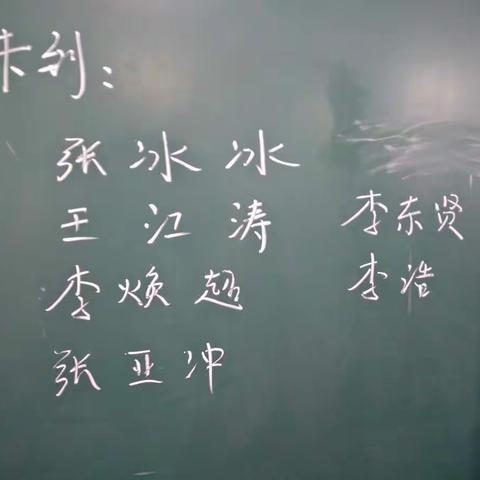 未到:
张冰冰
王江涛 李东贤
李焕超 李浩
张亚冲